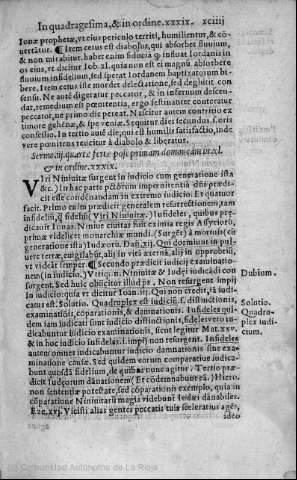 In quadragesima, & in ordine. xxxix. xciiij
Ionæ prophetæ, vt eius periculo territi, humilientur, & cō
uertātur. ¶ Item cetus est diabolus, qui absorbet fluuium,
& non mirabitur. habet enim fiduciā q̃ influat Iordanis in
os eius, vt dicitur Iob. xl. quia non est ei magnũ absorbere
fluuium infidelium, sed sperat Iordanem baptizatorum bi-
bere. Item cetus iste mordet delectatione, sed deglutit con
sensu. Ne autē digeratur peccator, & in infernum descen-
dat, remedium est pœnitentia, ergo festinanter conteratur
peccator, ne primo die pereat. Nascitur autem contritio ex
timore gehēnæ, & spe veniæ. Sequitur dies secundus s. oris
confessio. In tertio autē die, qui est humilis satisfactio, inde
vere pœnitens reiicitur à diabolo & liberatur.
Sermo in quarta feria post primam dominicam in xl.
& in ordine. xxxix.
VIri Niniuitæ surgent in iudicio cum generatione ista
&c. In hac parte pctōrum impœnitentiā dñs prædi-
cit esse condēnandam in extremo iudicio. Et quatuor
facit. Primo enim prædicit generalem resurrectionem, tam
infideliũ, q̃ fidelium (Viri Niniuitæ) Infideles, quibus præ-
dicauit Ionas. Niniue ciuitas fuit eximia regis Assyriorũ,
primæ videlicet monarchiæ mundi. (Surgēt) à mortuis (cũ
generatione ista) Iudæorũ. Dan. xij. Qui dormiunt in pul-
uere terræ, euigilabũt, alij in vitā æternā, alij in opprobriũ,
vt videāt semper. ¶ Secundo prædicit iudicij examinatio-
nem (in iudicio.) Vtriq; n. Niniuitæ & Iudęi iudicādi con
surgent. Sed huic obiicitur illud ps. Non resurgent impij Dubium.
in iudicio: quia vt dicitur Ioan. iij. Qui non credit, iā iudi-
catus est. Solutio. Quadruplex est iudiciũ. s. distinctionis, Solutio.
examinatiōis, cōparationis, & damnationis. Infideles qui- Quadru-
dem iam iudicati sunt iudicio distinctionis, fideles vero iu- plex iudi-
dicabuntur iudicio examinationis, sicut legitur Mat. xxv. cium.
& in hoc iudicio infideles. i. impij non resurgent. Infideles
autem omnes iudicabuntur iudicio damnationis sine exa-
minatione causæ. Sed quidem eorum cōparatiue iudica-
bunt quosdā fidelium, de quibus nunc agitur. Tertio præ-
dicit Iudæorum dānationem (Et condemnabunt eā.) Hiero.
non sententiæ potestate, sed cōparationis exemplo, quia in
cōparatione Niniuitarũ magis videbunt Iudæi dānabiles.
Eze. xvj. Vicisti alias gentes peccatis tuis sceleratius agēs,
ideo